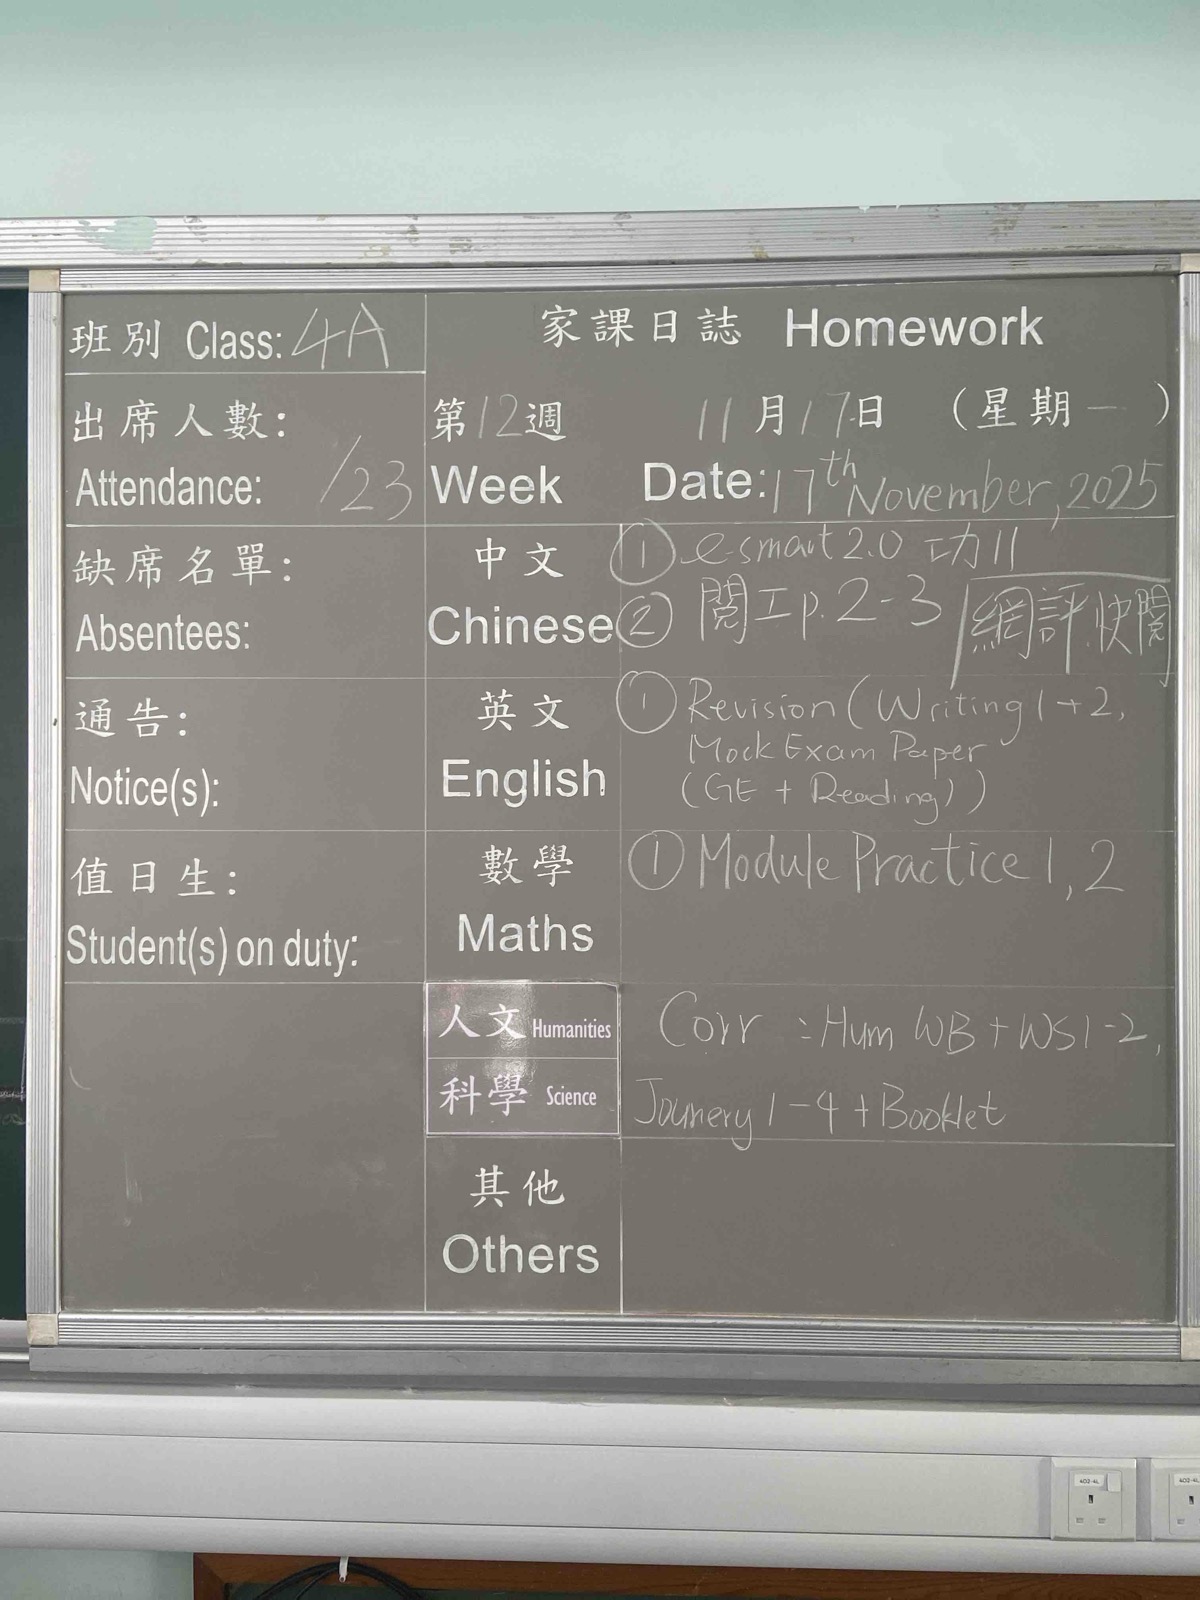 班別 Class: 4A
家課日誌 Homework
出席人數:
Attendance: /23
第12週 11月17日 (星期一)
Week Date: 17th November, 2025
缺席名單:
Absentees:
中文
Chinese
① e-smart 2.0 功11
② 閱工p.2-3 網評快閱
通告:
Notice(s):
英文
English
① Revision (Writing 1+2,
Mock Exam Paper
(GE + Reading))
值日生:
Student(s) on duty:
數學
Maths
① Module Practice 1, 2
人文 Humanities
科學 Science
Corr : Hum WB + WS1-2,
Jounery 1-4 + Booklet
其他
Others
402-4L
402-4L